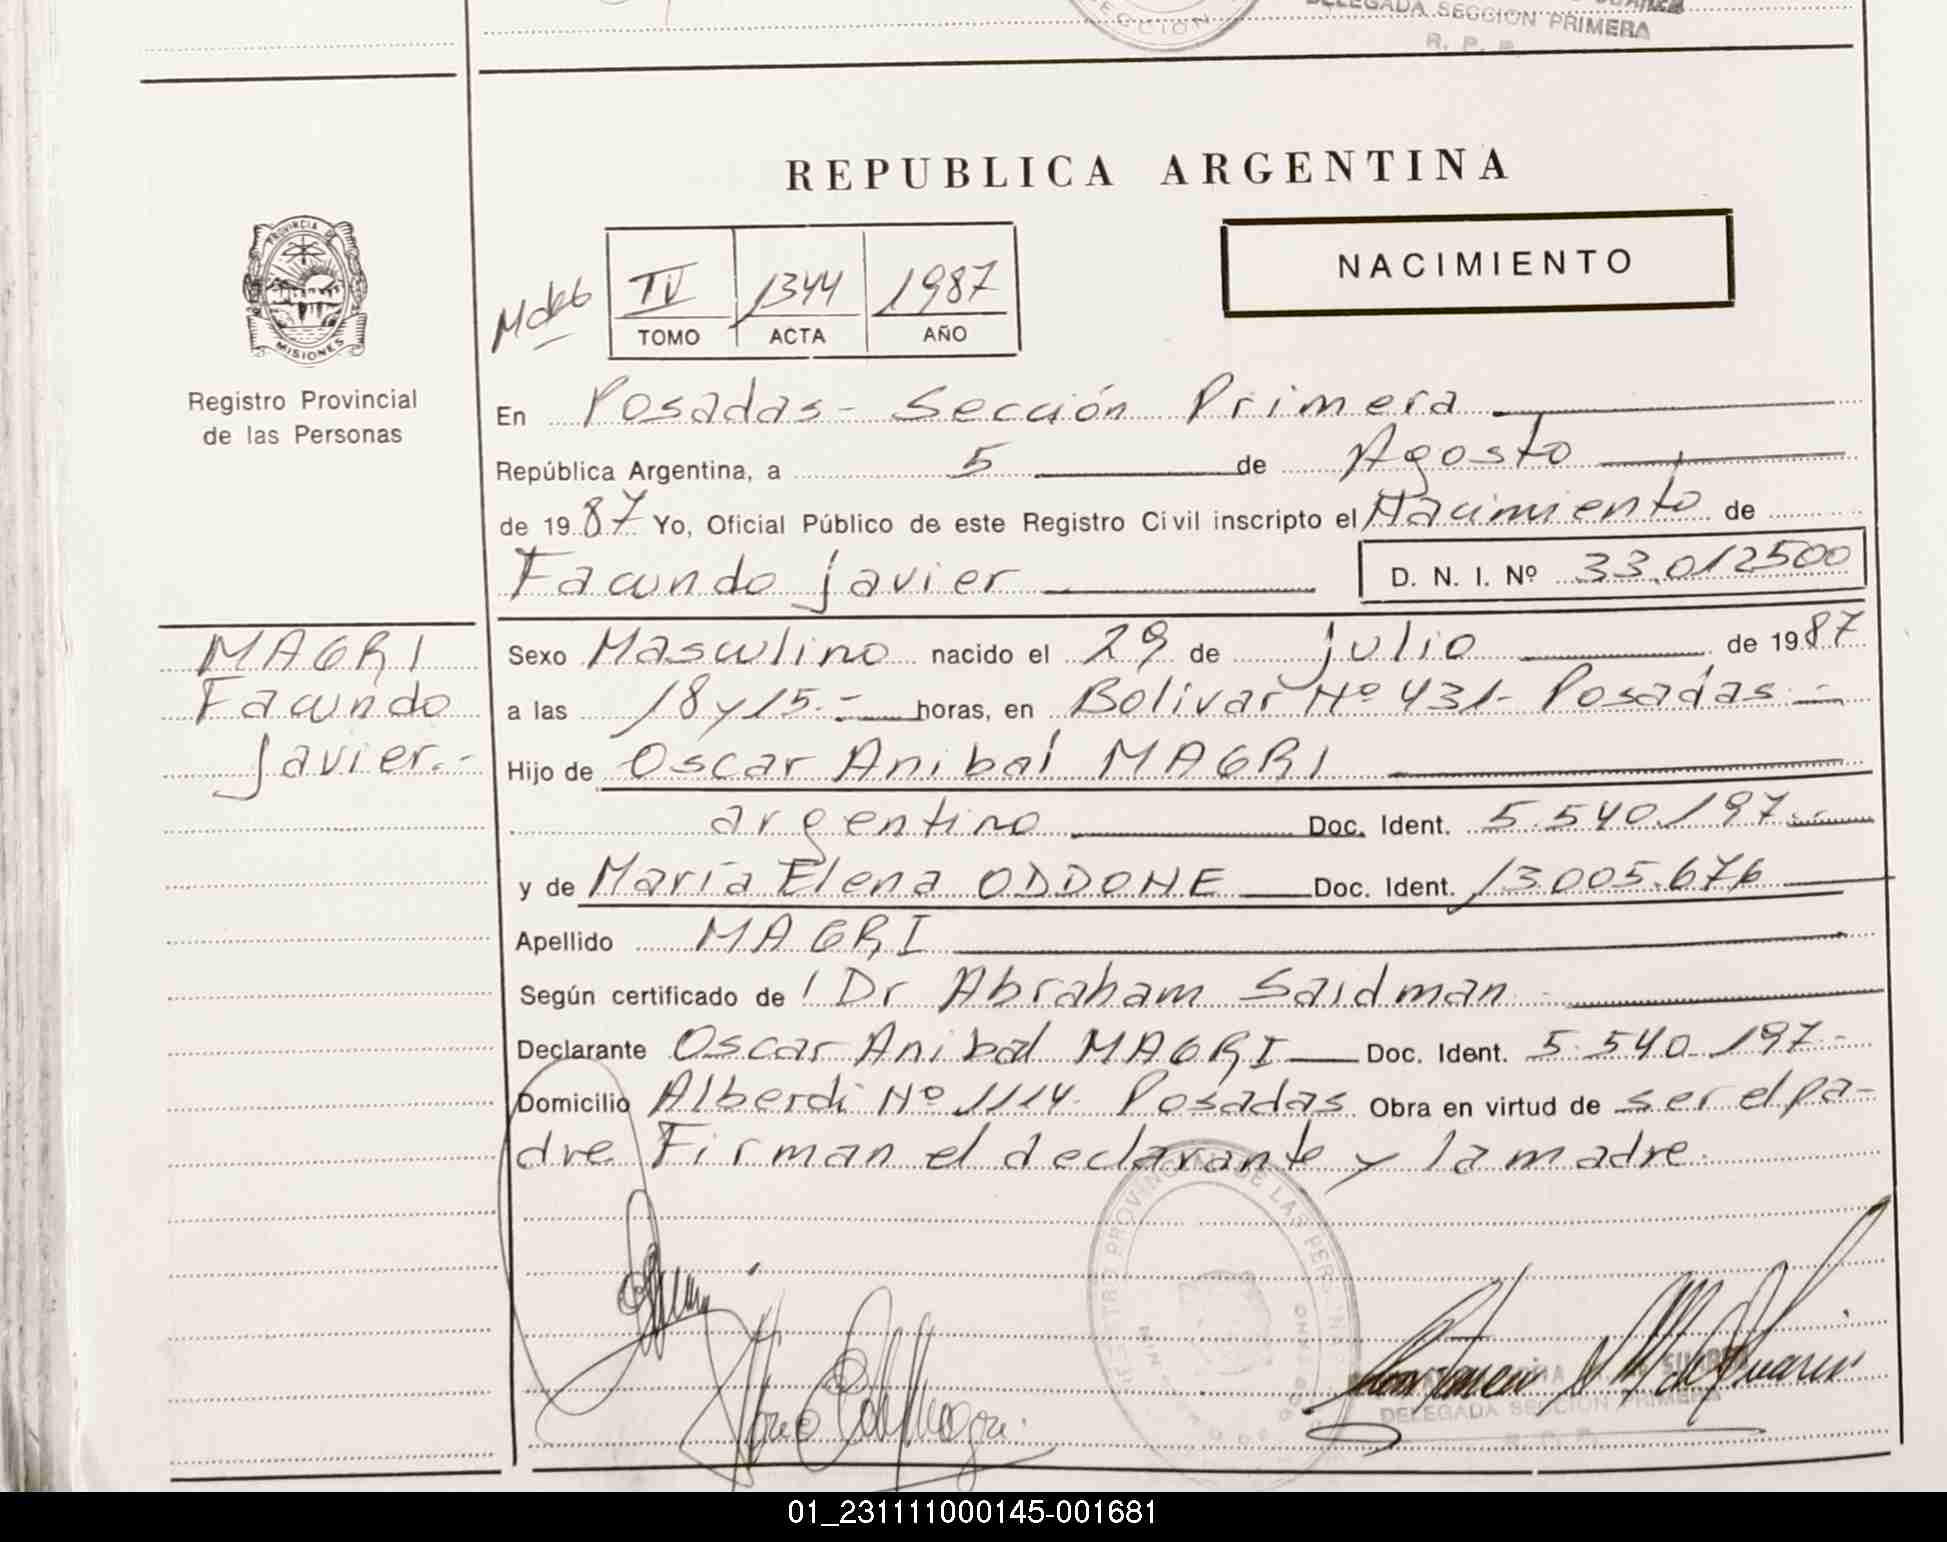 DELEGADA SECCION PRIMERA
R. P. P.
SECCION
REPUBLICA ARGENTINA
PROVINCIA DE
MISIONES
Registro Provincial
de las Personas
IV 1344 1987
TOMO ACTA AÑO
NACIMIENTO
En Posadas - Sección Primera
República Argentina, a 5 de Agosto
de 1987 Yo, Oficial Público de este Registro Civil inscripto el Nacimiento de
Facundo Javier D. N. I. Nº 33.012500
MAGRI
Facundo
Javier.-
Sexo Masculino nacido el 29 de julio de 1987
a las 18 y 15.- horas, en Bolivar Nº 431- Posadas.-
Hijo de Oscar Anibal MAGRI
argentino Doc. Ident. 5.540.197.-
y de María Elena ODDONE Doc. Ident. 13.005.676
Apellido MAGRI
Según certificado de l Dr Abraham Saidman
Declarante Oscar Anibal MAGRI Doc. Ident. 5.540.197.-
Domicilio Alberdi Nº 1114. Posadas Obra en virtud de ser el pa-
dre Firman el declarante y la madre.
REGISTRO PROVINCIAL DE LAS PERSONAS
DELEGADA SECCION PRIMERA
R. P. P.
01_231111000145-001681